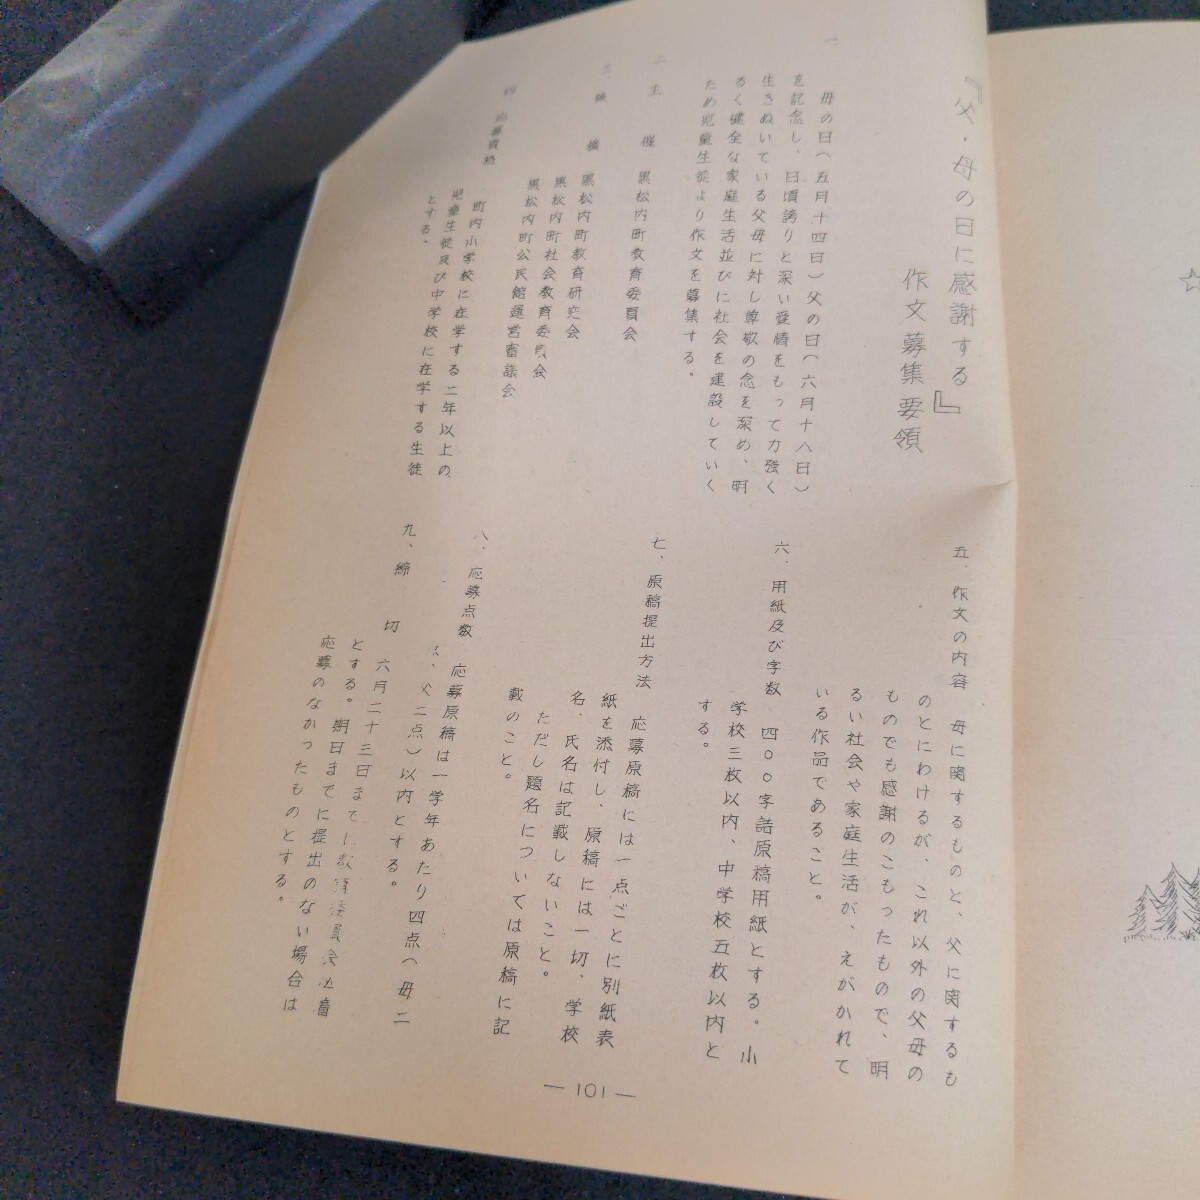 『父・母の日に感謝する』
作文募集要領
一
母の日(五月十四日)父の日(六月十八日)
を記念し、日頃誇りと深い愛情をもって力強く
生きぬいている父母に対し尊敬の念を深め、明
るく健全な家庭生活並びに社会を建設していく
ため児童生徒より作文を募集する。
二 主催 黒松内町教育委員会
三 後援 黒松内町教育研究会
黒松内町社会教育委員会
黒松内町公民館運営審議会
四 応募資格
町内小学校に在学する二年以上の
児童生徒及び中学校に在学する生徒
とする。
五、作文の内容 母に関するものと、父に関するも
のとにわけるが、これ以外の父母の
ものでも感謝のこもったもので、明
るい社会や家庭生活が、えがかれて
いる作品であること。
六、用紙及び字数 四〇〇字詰原稿用紙とする。小
学校三枚以内、中学校五枚以内と
する。
七、原稿提出方法
応募原稿には一点ごとに別紙表
紙を添付し、原稿には一切、学校
名、氏名は記載しないこと。
ただし題名については原稿に記
載のこと。
八、応募点数 応募原稿は一学年あたり四点(母二
、父二点)以内とする。
九、締切 六月二十三日まで教育委員会必着
とする。期日までに提出のない場合は
応募のなかったものとする。
— 101 —